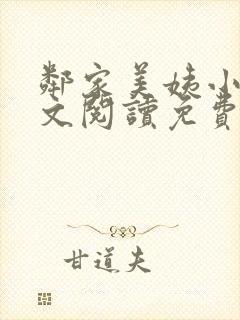 鄰家美姨小
文閱讀免費
甘道夫